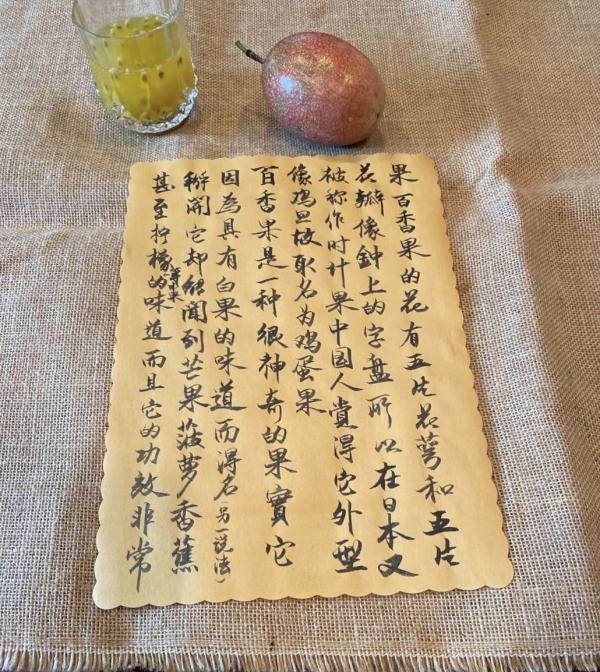 果百香果的花有五片花萼和五片
花瓣像鐘上的字盤所以在日本又
被称作时计果中国人覺得它外型
像鸡旦故取名为鸡蛋果
百香果是一种很神奇的果實它
因為具有白果的味道而得名(另一说法)
掰開它却能聞到芒果菠萝香蕉
甚至柠檬等水果的味道而且它的功效非常